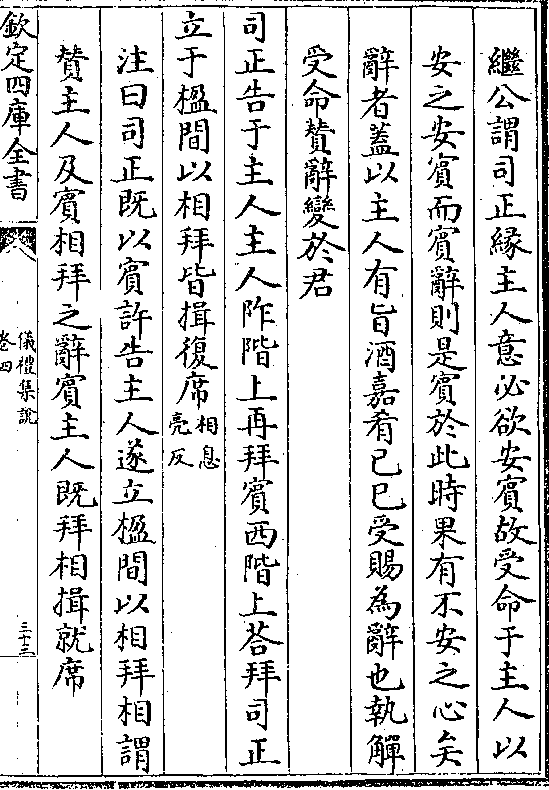 繼公謂司正緣主人意必欲安賓故受命于主人以
安之安賓而賓辭則是賓於此時果有不安之心矣
辭者蓋以主人有旨酒嘉肴已已受賜為辭也執觶
受命贊辭變於君
司正告于主人主人阼階上再拜賓西階上荅拜司正
立于楹間以相拜皆揖復席相息亮反
注曰司正既以賓許告主人遂立楹間以相拜相謂
贊主人及賓相拜之辭賓主人既拜相揖就席
欽定四庫全書
儀禮集說
卷四
三十二